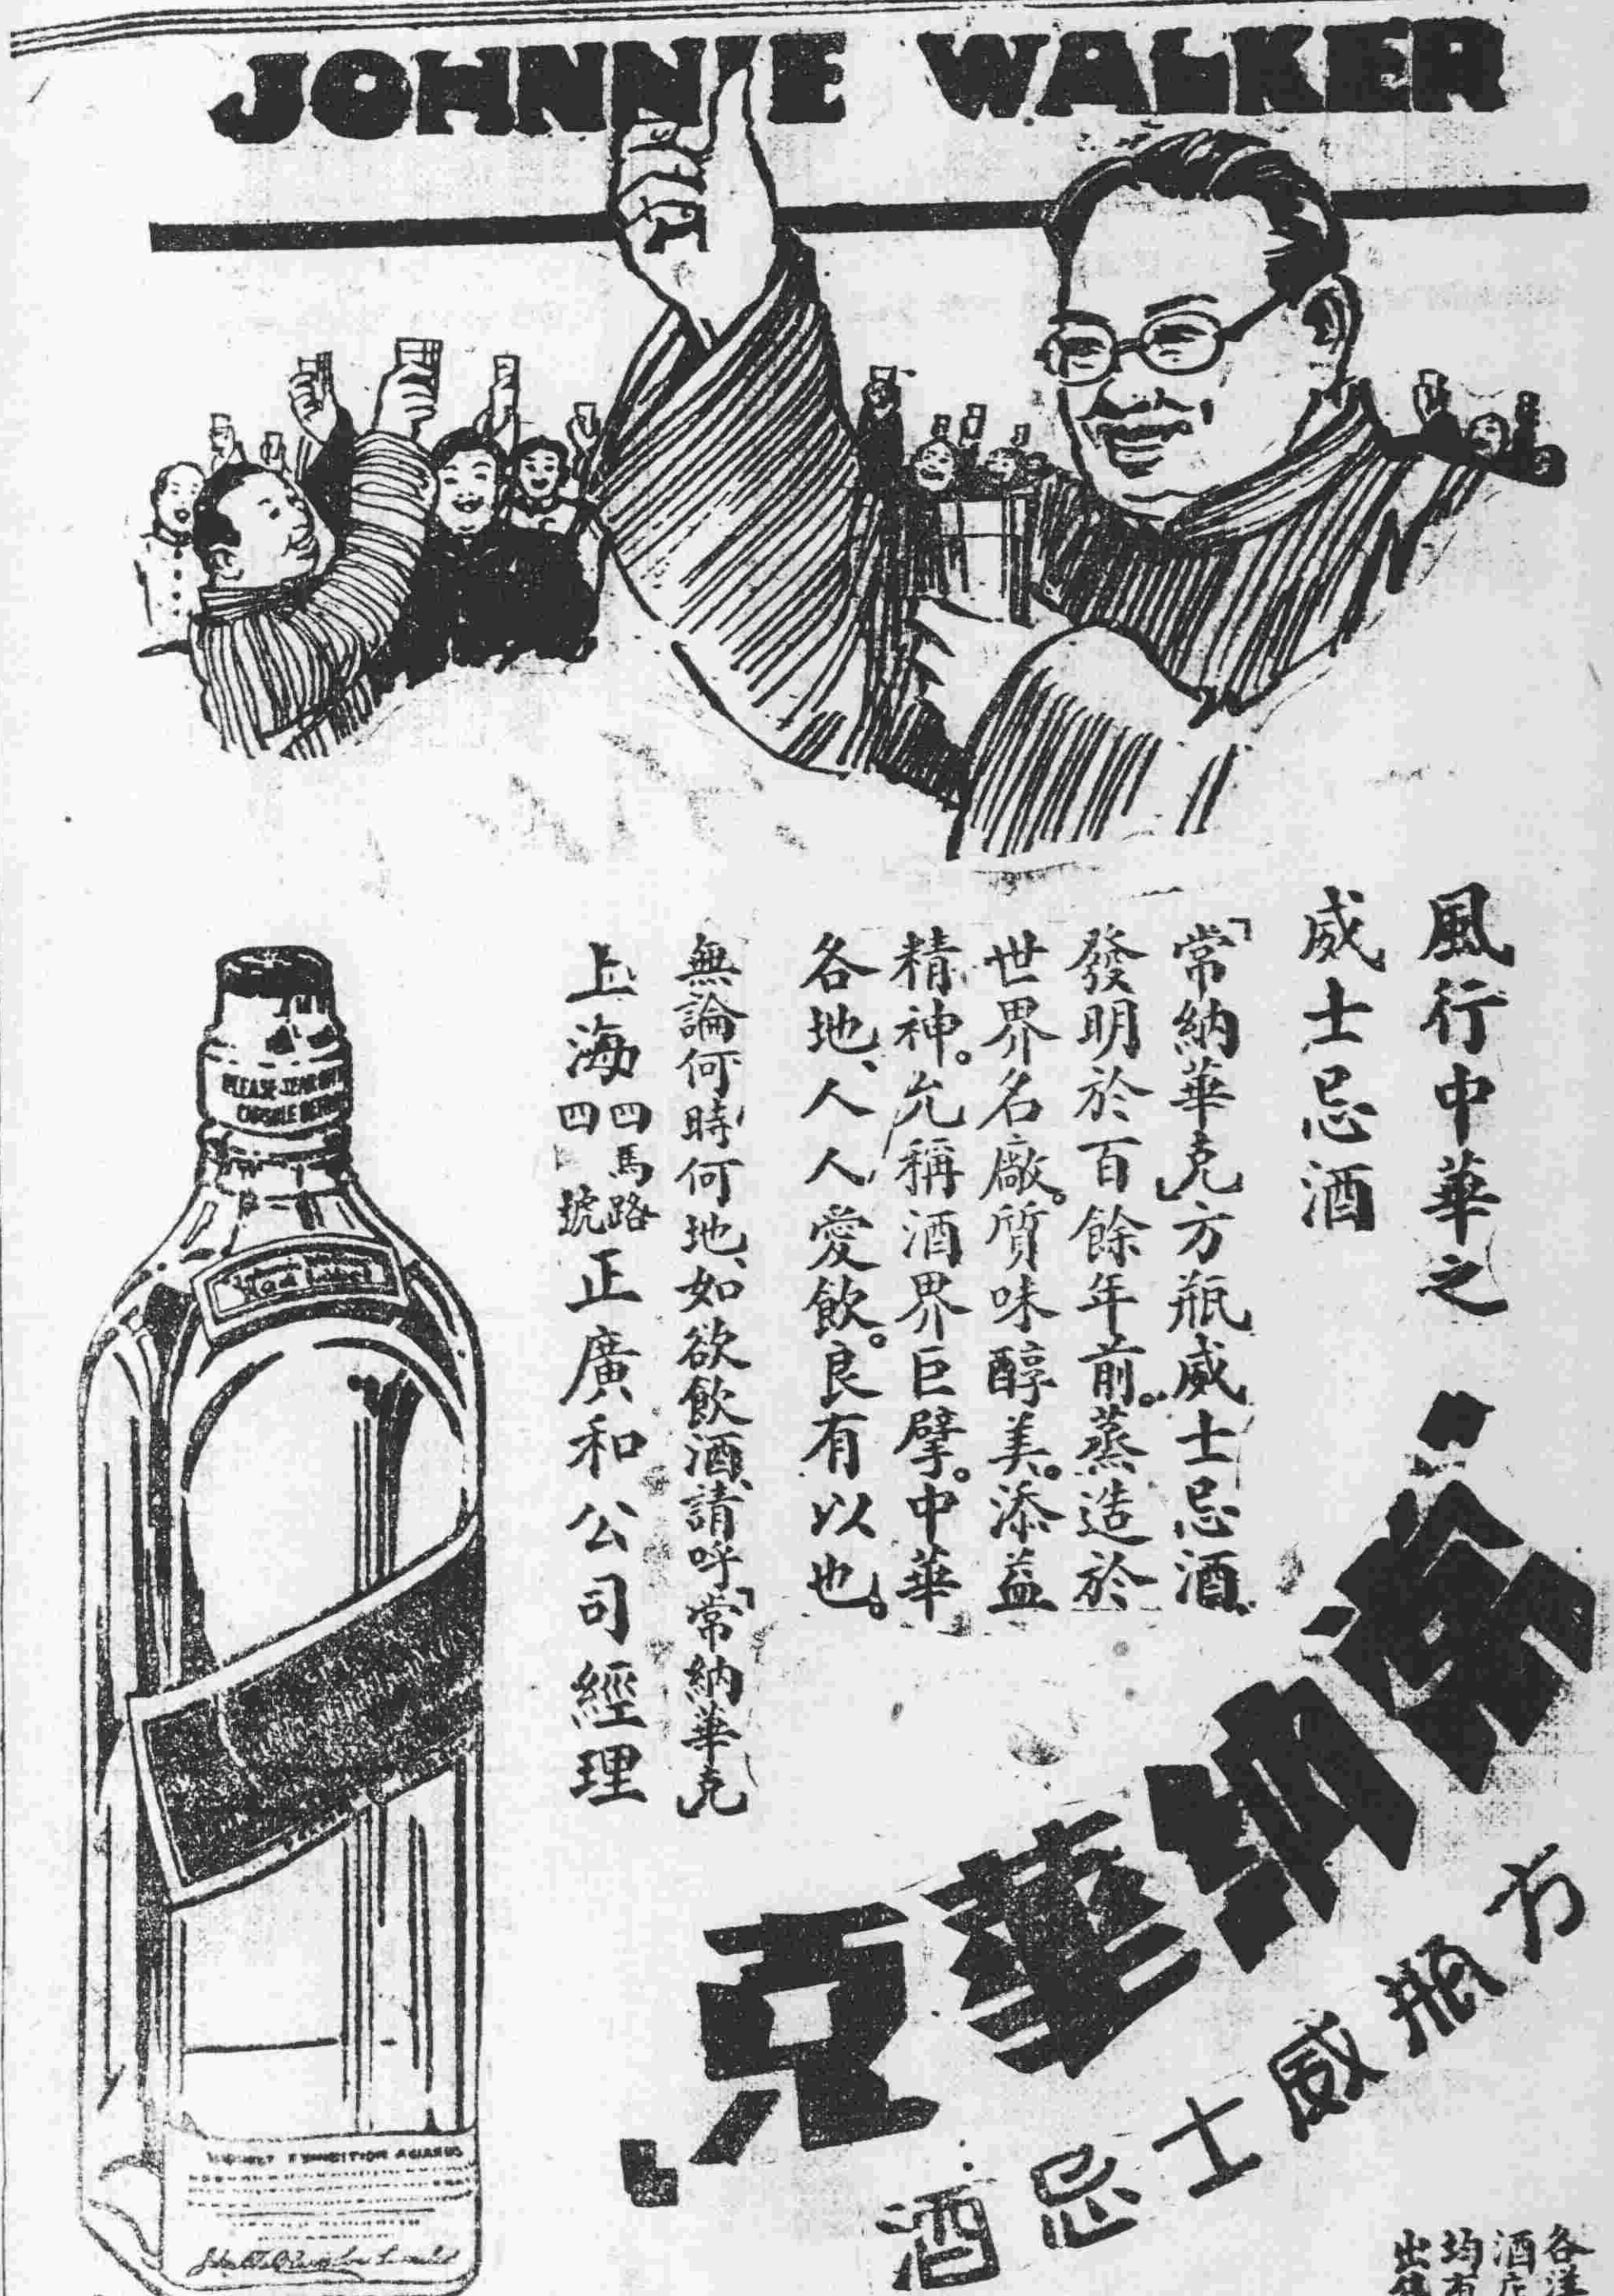 JOHNNIE WALKER
風行中華之
威士忌酒
「常納華克」方瓶威士忌酒、
發明於百餘年前。蒸造於
世界名廠。質味醇美。添益
精神。允稱酒界巨擘。中華
各地、人人愛飲。良有以也。
無論何時何地、如欲飲酒、請呼「常納華克」
上海四馬路四四號正廣和公司經理
常納華克
方瓶威士忌酒
各洋
酒店
均有
出售
PLEASE TEAR OFF
CAPSULE BEFORE
Red Label
HIGHEST EXHIBITION AWARDS